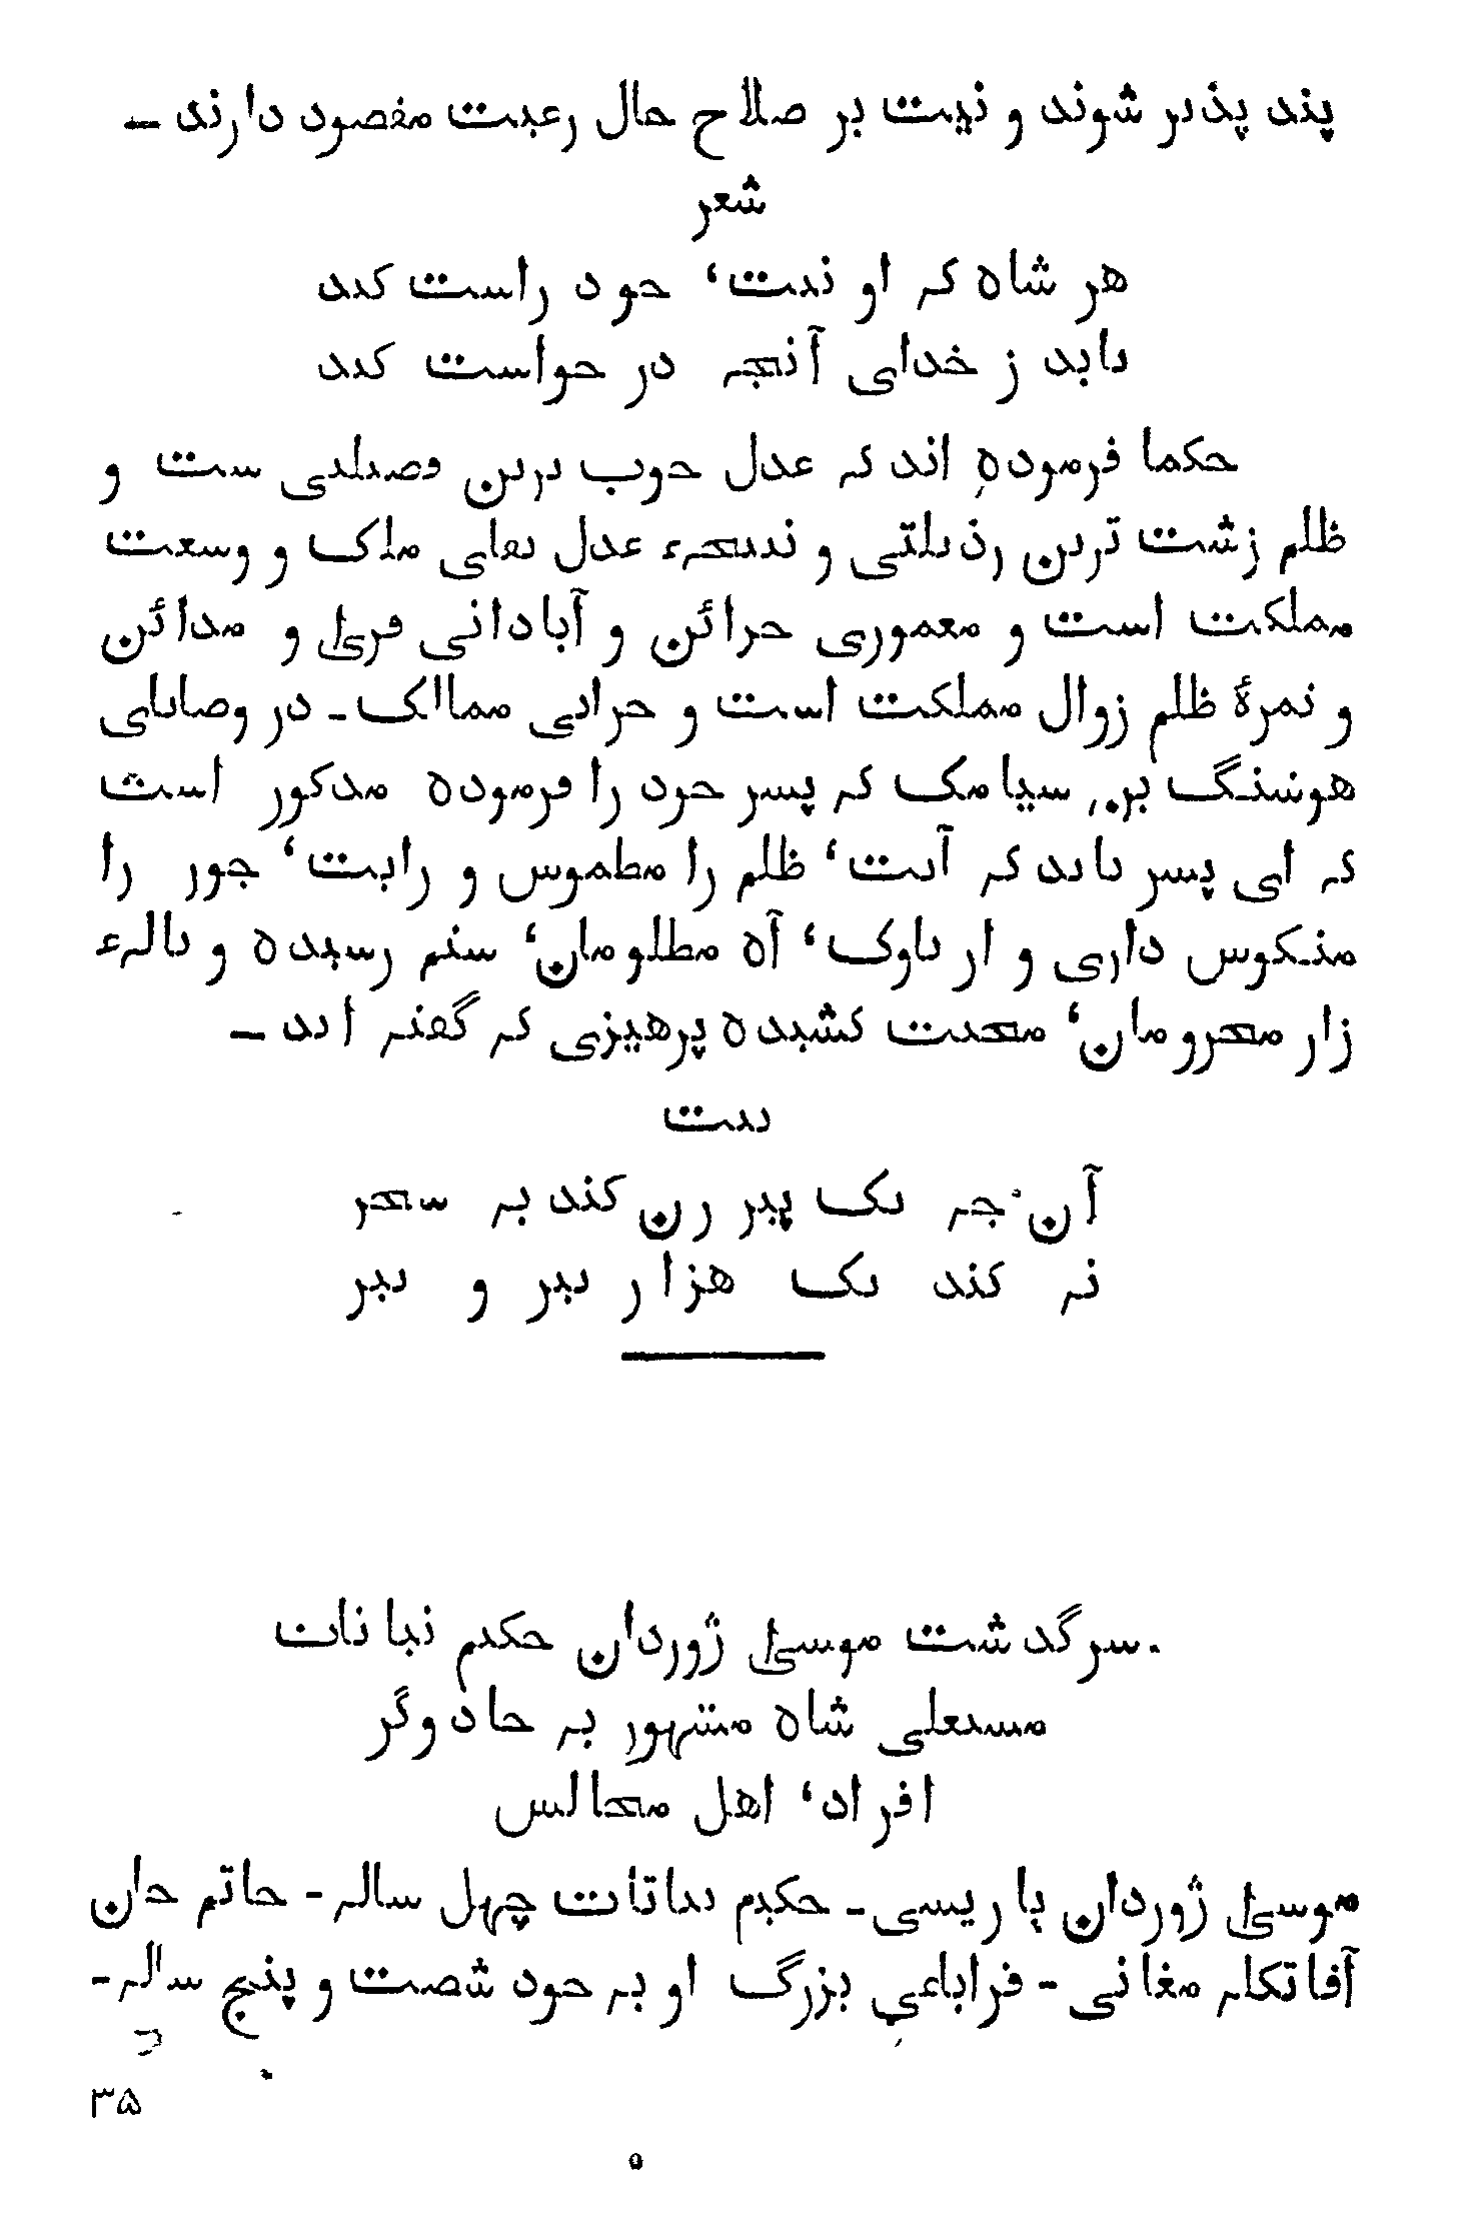 پند پذیر شوند و نیت بر صلاح حال رعیت مقصور دارند ـ
شعر
هر شاه که او نیت، خود راست کند
یابد ز خدای آنچه در خواست کند
حکما فرموده اند که عدل خوب ترین فضیلتی ست و
ظلم زشت ترین رذیلتی و نتیجهء عدل بقای ملک و وسعت
مملکت است و معموری خزائن و آبادانی قریٰ و مدائن
و ثمرۀ ظلم زوال مملکت است و خرابی ممالک ـ در وصایای
هوشنگ بن سیامک که پسر خود را فرموده مذکور است
که ای پسر باید که آیت، ظلم را مطموس و رایت، جور را
منکوس داری و از ناوک، آه مظلومان، ستم رسیده و نالهء
زار محرومان، محنت کشیده پرهیزی که گفته اند ـ
بیت
آن چه یک پیر زن کند به سحر
نه کند یک هزار تیر و تبر
سرگذشت موسیٰ ژوردان حکیم نباتات
مستعلی شاه مشهور به جادوگر
افراد، اهل مجالس
موسیٰ ژوردان پاریسی ـ حکیم نباتات چهل ساله ـ حاتم خان
آقا تکله مغانی ـ قراباغی بزرگ او به خود شصت و پنج ساله ـ
۳۵